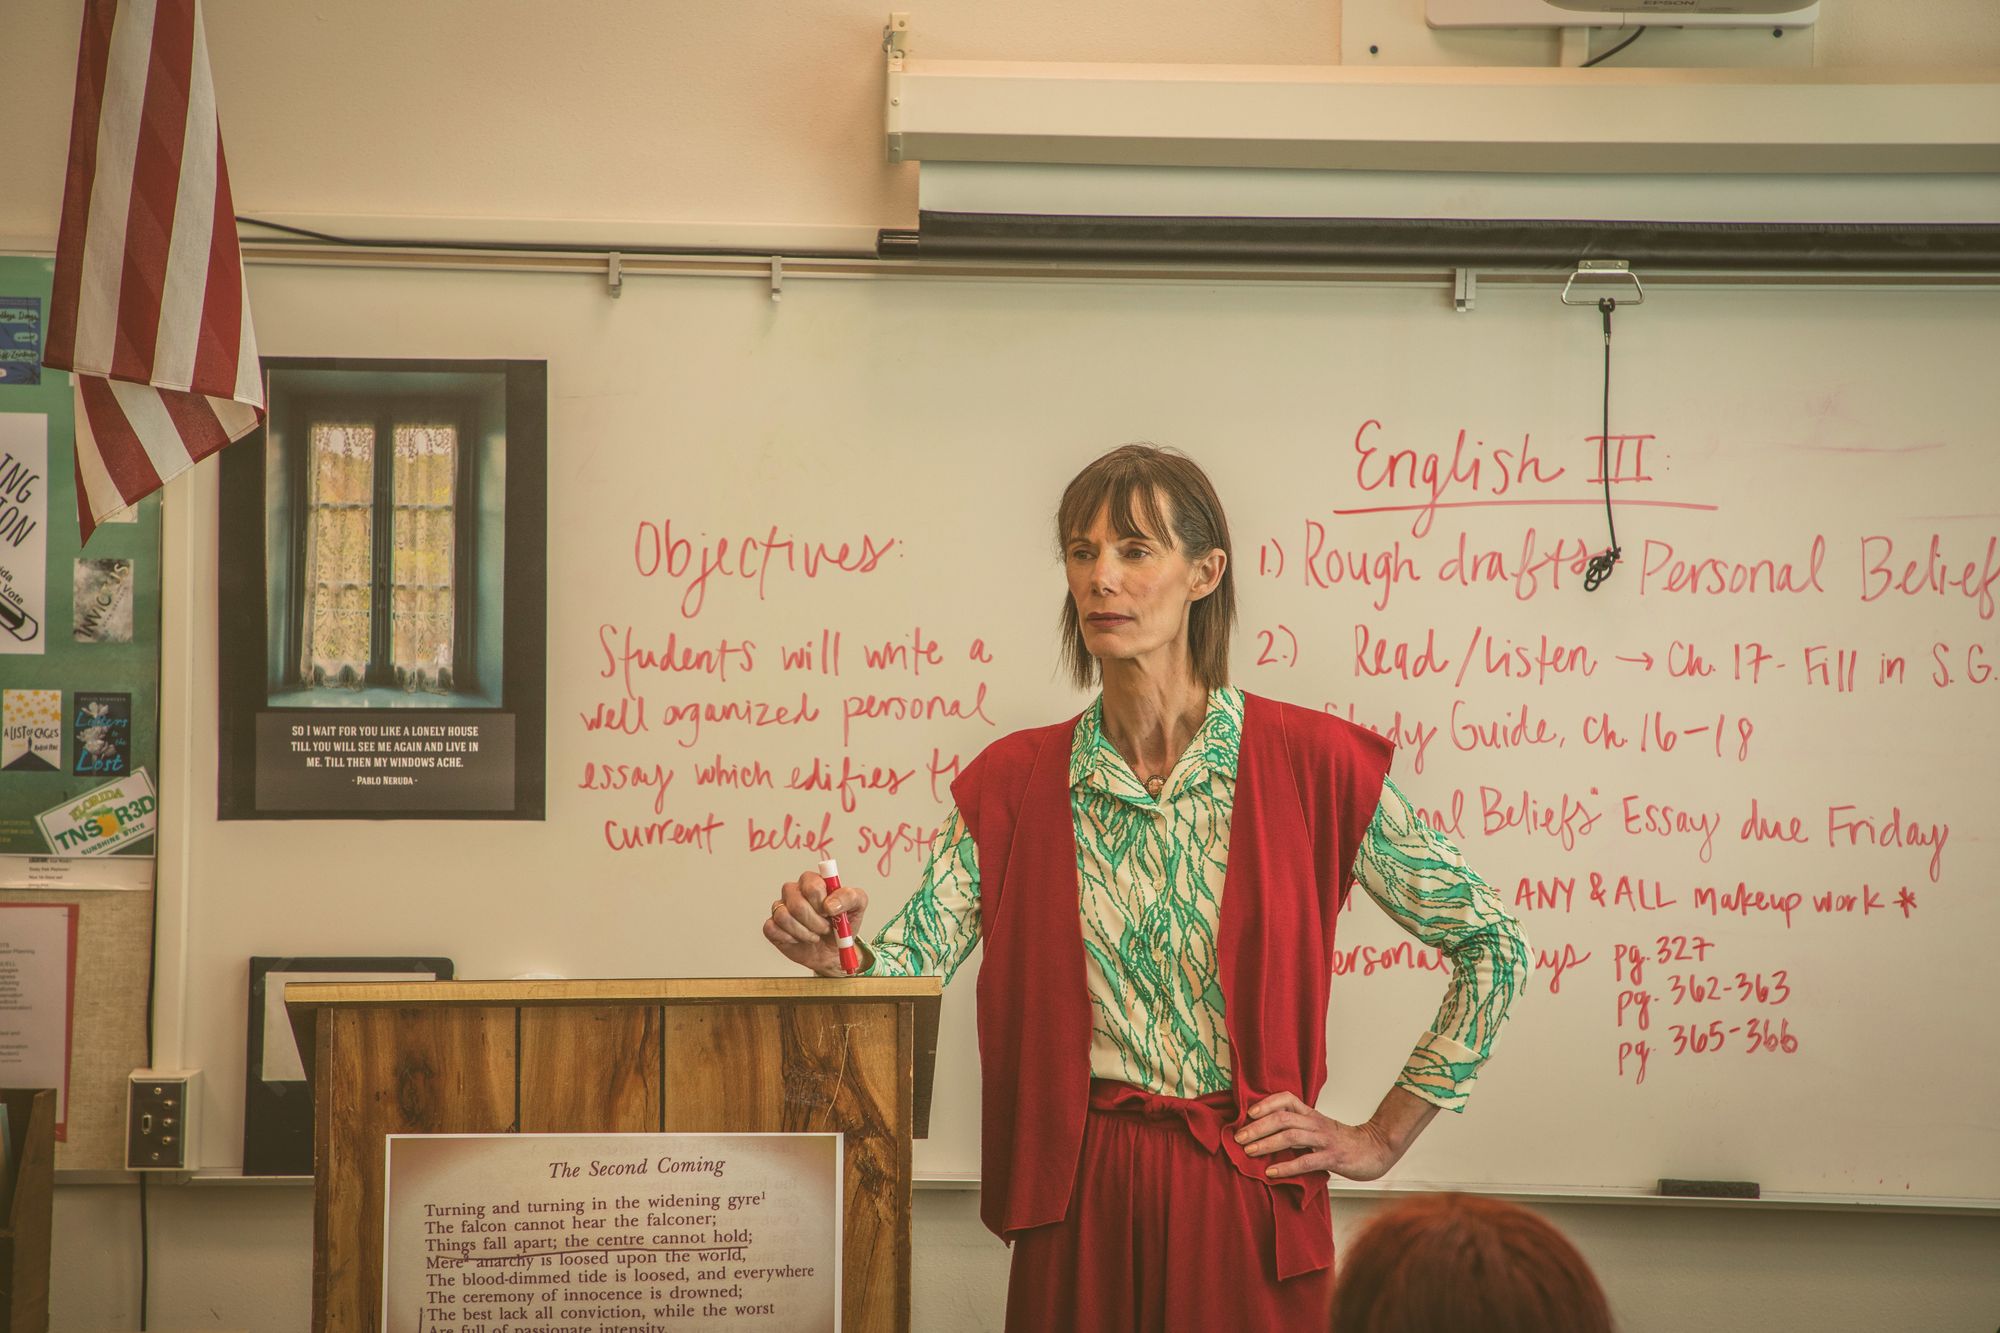 EPSON
ING
ION
Vote
INVICTUS
A LIST OF CAGES
Letters
to the
Lost
FLORIDA
TNS R3D
SUNSHINE STATE
SO I WAIT FOR YOU LIKE A LONELY HOUSE
TILL YOU WILL SEE ME AGAIN AND LIVE IN
ME. TILL THEN MY WINDOWS ACHE.
- PABLO NERUDA -
Objectives:
Students will write a
well organized personal
essay which edifies th
current belief syste
English III:
1.) Rough drafts Personal Belief
2.) Read/Listen → Ch. 17 - Fill in S.G.
Study Guide, Ch. 16-18
nal Beliefs" Essay due Friday
- ANY & ALL makeup work *
ersonal ys pg. 327
pg. 362-363
pg. 365-366
The Second Coming
Turning and turning in the widening gyre¹
The falcon cannot hear the falconer;
Things fall apart; the centre cannot hold;
Mere² anarchy is loosed upon the world,
The blood-dimmed tide is loosed, and everywhere
The ceremony of innocence is drowned;
The best lack all conviction, while the worst
Are full of passionate intensity.